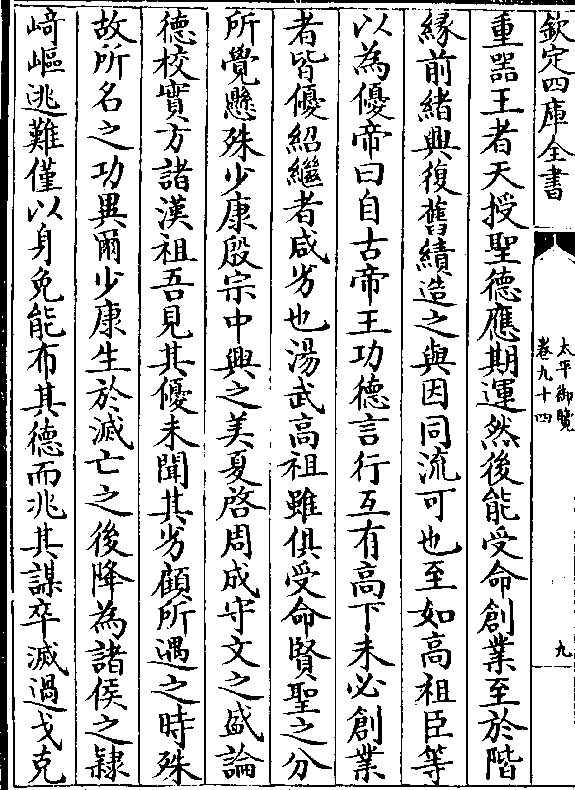 欽定四庫全書
太平御覽
卷九十四
九
重器王者天授聖德應期運然後能受命創業至於階
緣前緒興復舊績造之與因同流可也至如高祖臣等
以為優帝曰自古帝王功德言行互有高下未必創業
者皆優紹繼者咸劣也湯武高祖雖俱受命賢聖之分
所覺懸殊少康殷宗中興之美夏啓周成守文之盛論
德校實方諸漢祖吾見其優未聞其劣顧所遇之時殊
故所名之功異爾少康生於滅亡之後降為諸侯之隸
崎嶇逃難僅以身免能布其德而兆其謀卒滅過戈克